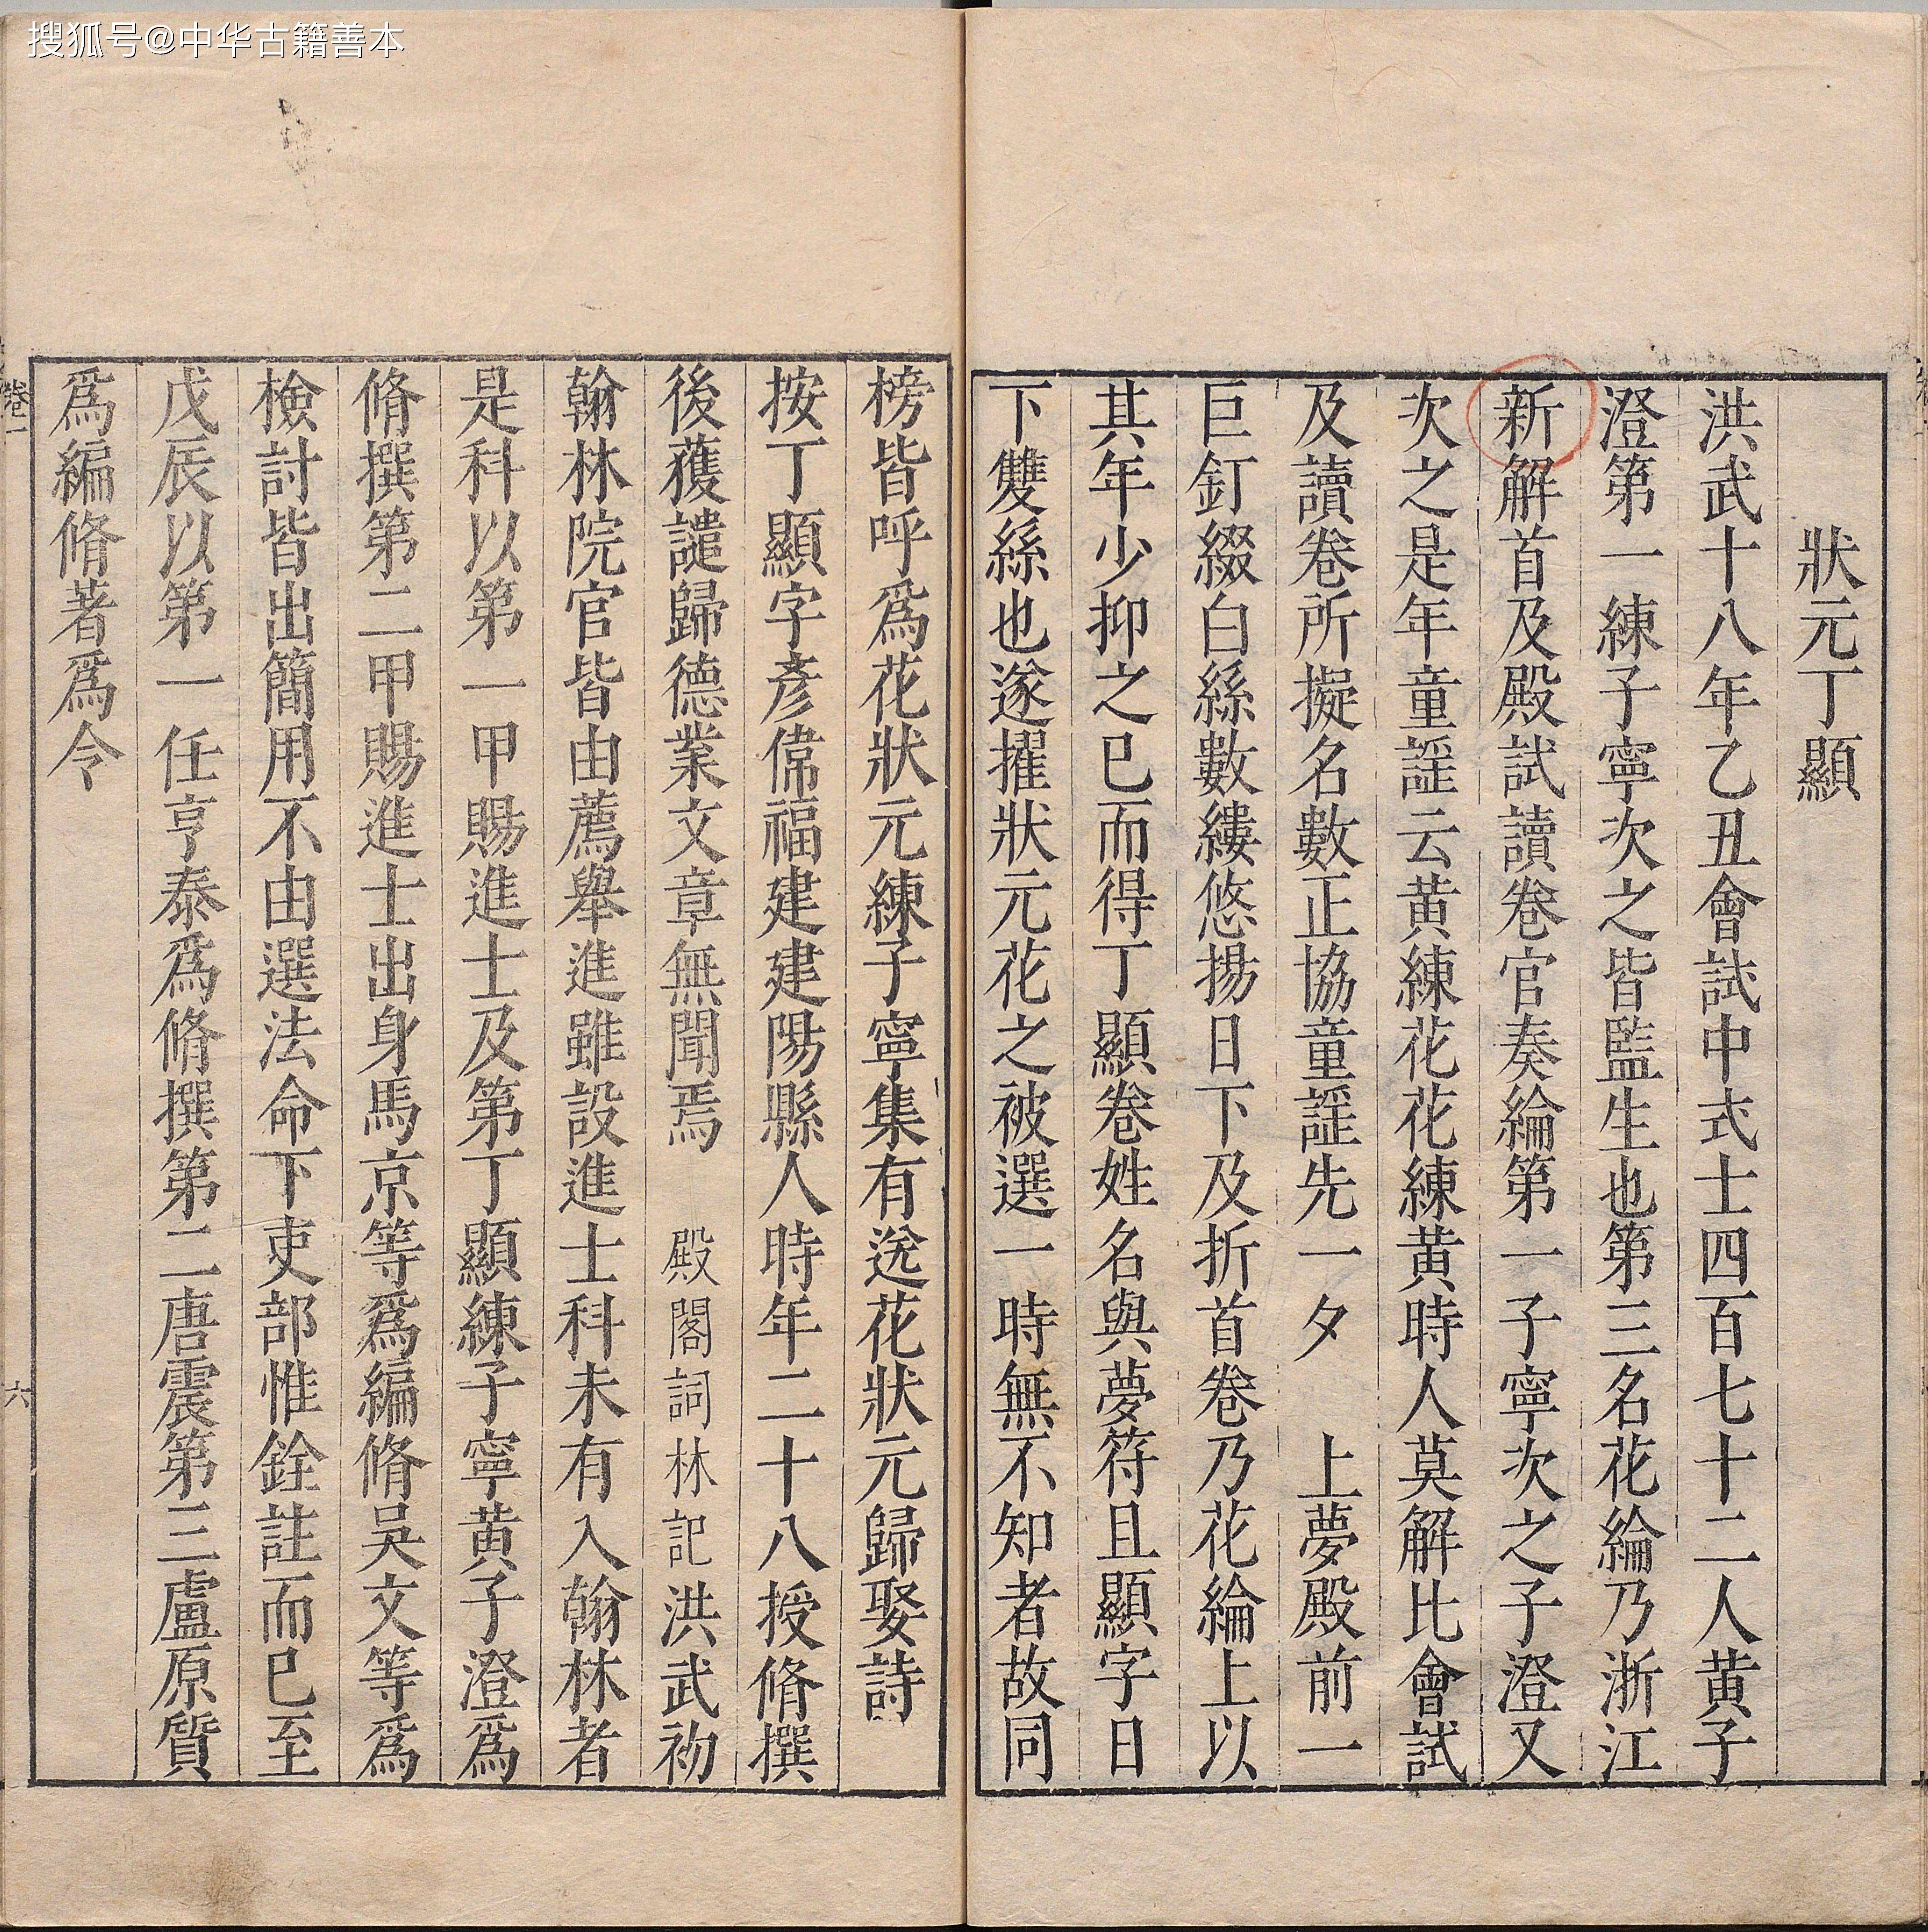 搜狐号@中华古籍善本
狀元丁顯
洪武十八年乙丑會試中式士四百七十二人黄子
澄第一練子寧次之皆監生也第三名花綸乃浙江
新解首及殿試讀卷官奏綸第一子寧次之子澄又
次之是年童謡云黄練花花練黄時人莫解比會試
及讀卷所擬名數正協童謡先一夕上夢殿前一
巨釘綴白絲數縷悠揚日下及折首卷乃花綸上以
其年少抑之已而得丁顯卷姓名與夢符且顯字日
下雙絲也遂擢狀元花之被選一時無不知者故同
榜皆呼爲花狀元練子寧集有送花狀元歸娶詩
按丁顯字彥偉福建建陽縣人時年二十八授脩撰
後獲譴歸德業文章無聞焉 殿閣詞林記洪武初
翰林院官皆由薦舉進雖設進士科未有入翰林者
是科以第一甲賜進士及第丁顯練子寧黄子澄爲
脩撰第二甲賜進士出身馬京等爲編脩吳文等爲
檢討皆出簡用不由選法命下吏部惟銓註而已至
戊辰以第一任亨泰爲脩撰第二唐震第三盧原質
爲編脩著爲令
卷一
六